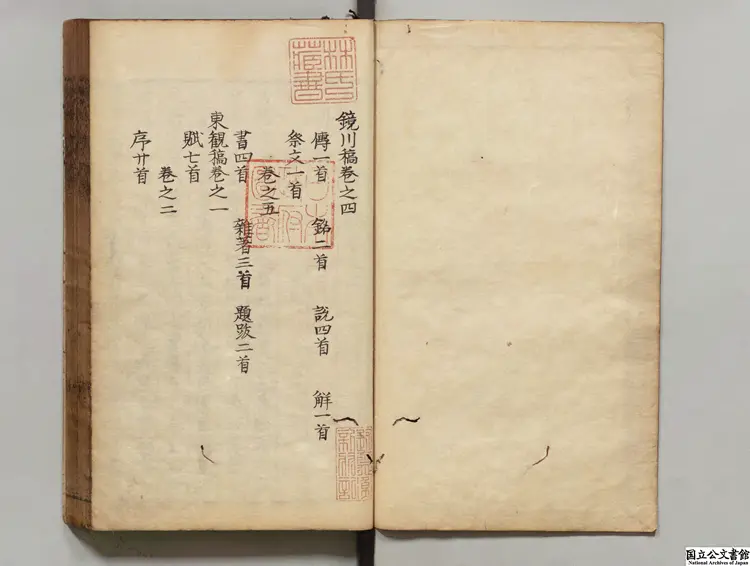 鏡川稿巻之四
傳一首 銘二首 說四首 解一首
祭文一首
巻之五
書四首 雜著三首 題跋二首
東観稿巻之一
賦七首
巻之二
序廿首
林氏藏書
国立公文書館
National Archives of Japan